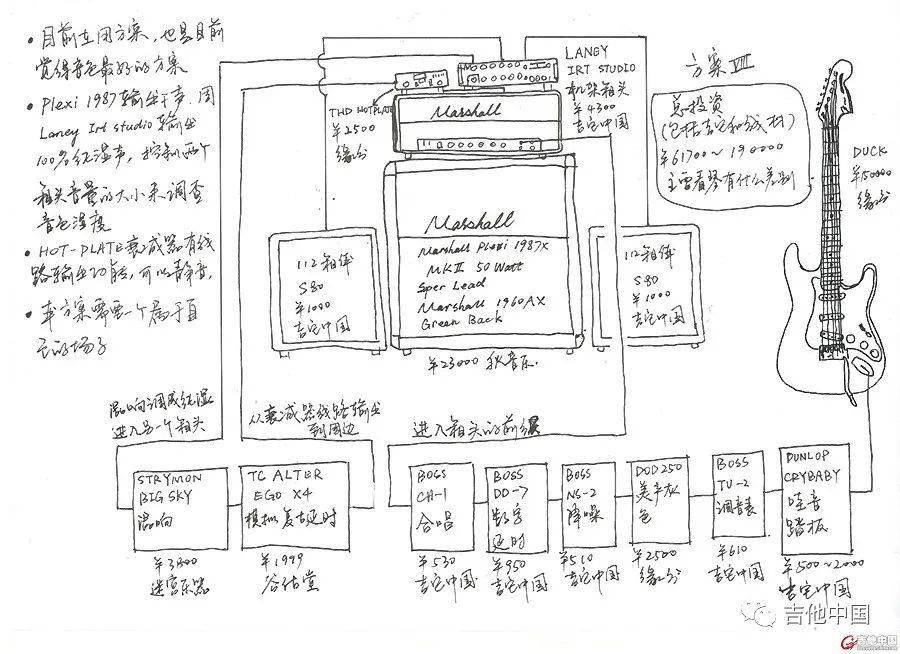 • 目前在用方案，也是目前
觉得音色最好的方案
• Plexi 1987输出干声，用
Laney Irt studio输出
100%纯湿声，控制两个
箱头音量的大小来调整
音色湿度
• HOT-PLATE衰减器有线
路输出功能，可以静音，
• 本方案需要一个属于自
己的场子
THD HOTPLATE
¥2500
缘分
LANEY
IRT STUDIO
机架箱头
¥4300
吉它中国
方案Ⅷ
总投资
(包括吉它和线材)
¥61700~190000
主要看琴有什么差别
DUCK
¥150000
缘分
Marshall
Marshall
Marshall Plexi 1987X
MKII 50 Watt
Sper Lead
Marshall 1960AX
Green Back
¥23000 秋音乐.
112箱体
S80
¥1000
吉它中国
112箱体
S80
¥1000
吉它中国
混响调成纯湿
进入另一个箱头
从衰减器线路输出
到周边
进入箱头的前级
STRYMON
BIGSKY
混响
¥3800
迷宫乐器
TC ALTER
EGO X4
模拟复古延时
¥1999
BOSS
CH-1
合唱
¥530
吉它中国
BOSS
DD-7
数字
延时
¥950
吉它中国
BOSS
NS-2
降噪
¥510
吉它中国
DOD250
美产灰
色
¥2500
缘分
BOSS
TU-2
调音表
¥610
吉它中国
DUNLOP
CRYBABY
哇音
踏板
¥500~2000
吉它中国
吉他中国
吉他中国